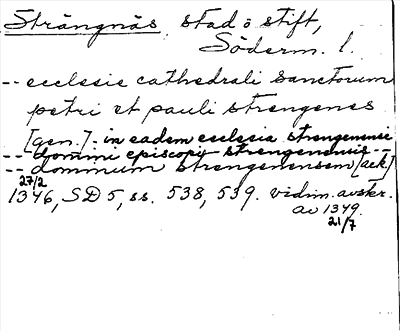 Strängnäs stad o stift,
Söderm. l.
-- ecclesie cathedrali sanctorum
petri et pauli strengenes
[gen.] - in eadem ecclesia strengenensi
-- domini episcopi strengenensis --
-- dominum strengenensem [ack]
27/2
1346, SD 5, ss. 538, 539. vidim. avskr.
av 1349
21/7